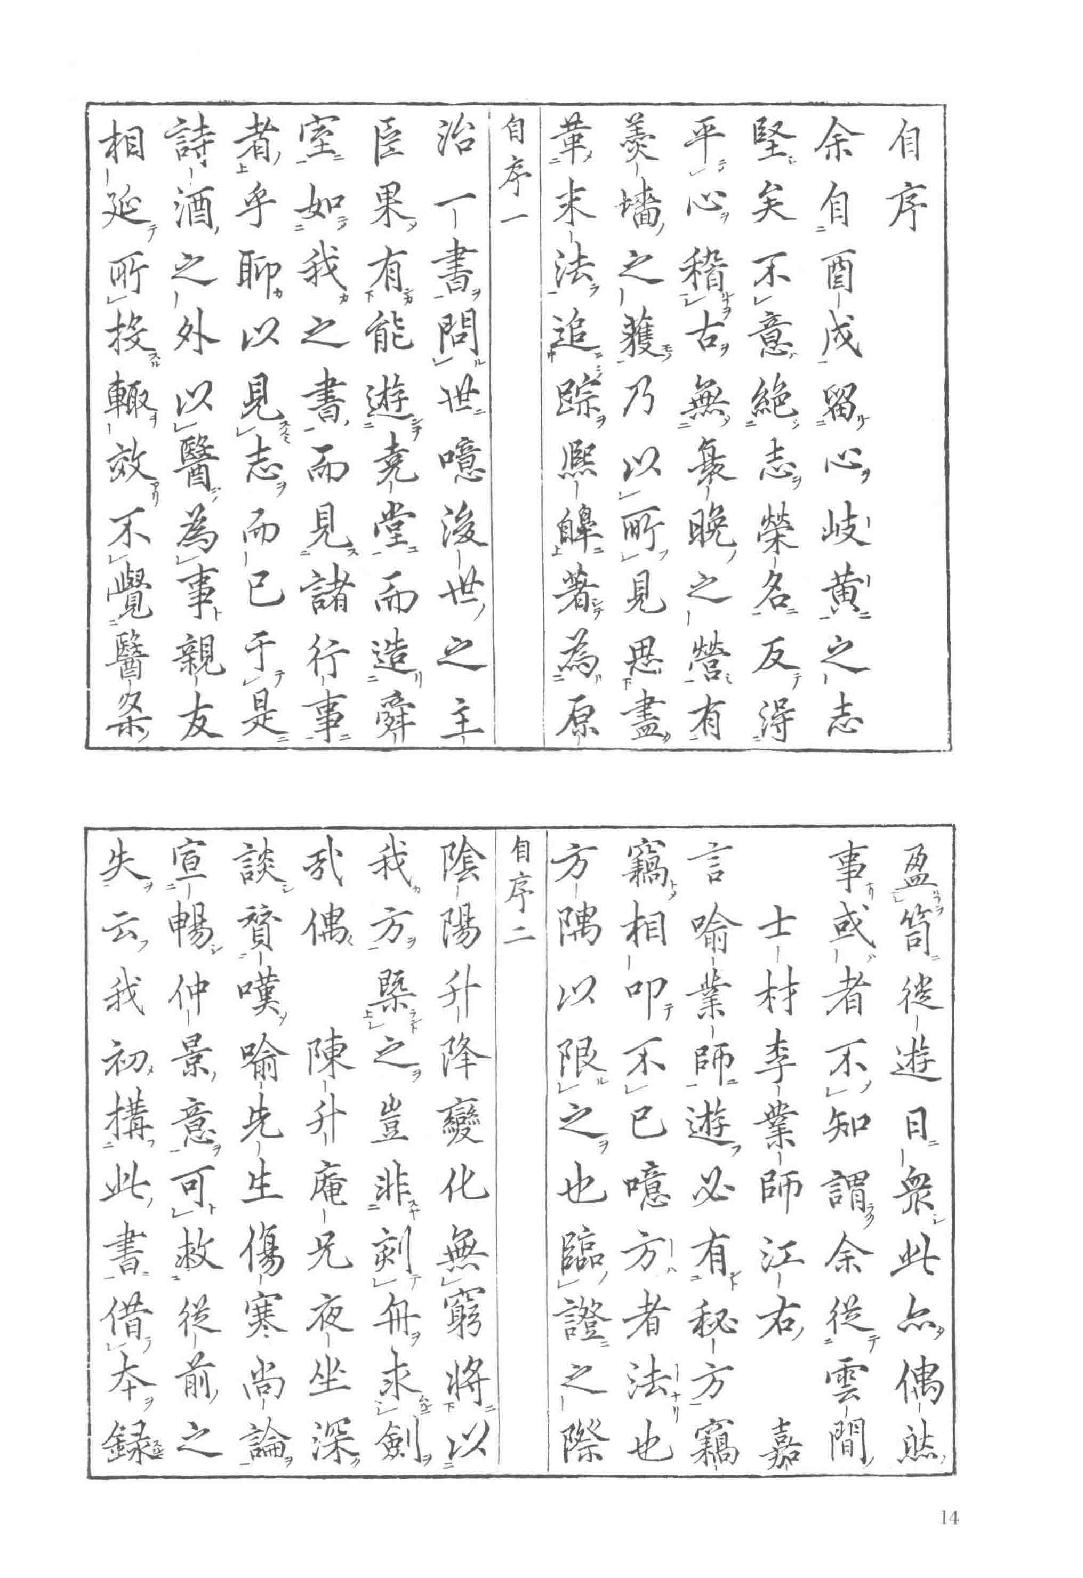 自序
余自酉戌留心岐黃之志
堅矣不意絶志榮名反得
平心稽古無裘晚之營有
羮墻之獲乃以所見思盡
華末法追踪熈皥著為原
自序一
治一書問世噫後世之主
臣果有能遊堯堂而造舜
室如我之書而見諸行事
者乎聊以見志而已于是
詩酒之外以醫為事親友
相延所投輙效不覺醫案
盈笥從遊日衆此亦偶然
事或者不知謂余從雲間
士材李業師江右嘉
言喻業師遊必有秘方竊
竊相叩不已噫方者法也
方隅以限之也臨證之際
自序二
陰陽升降變化無窮將以
我方槩之豈非刻舟求劍
㢤偶陳升庵兄夜坐深
談賛嘆喻先生傷寒尚論
宣暢仲景意可救從前之
失云我初搆此書借本録
14